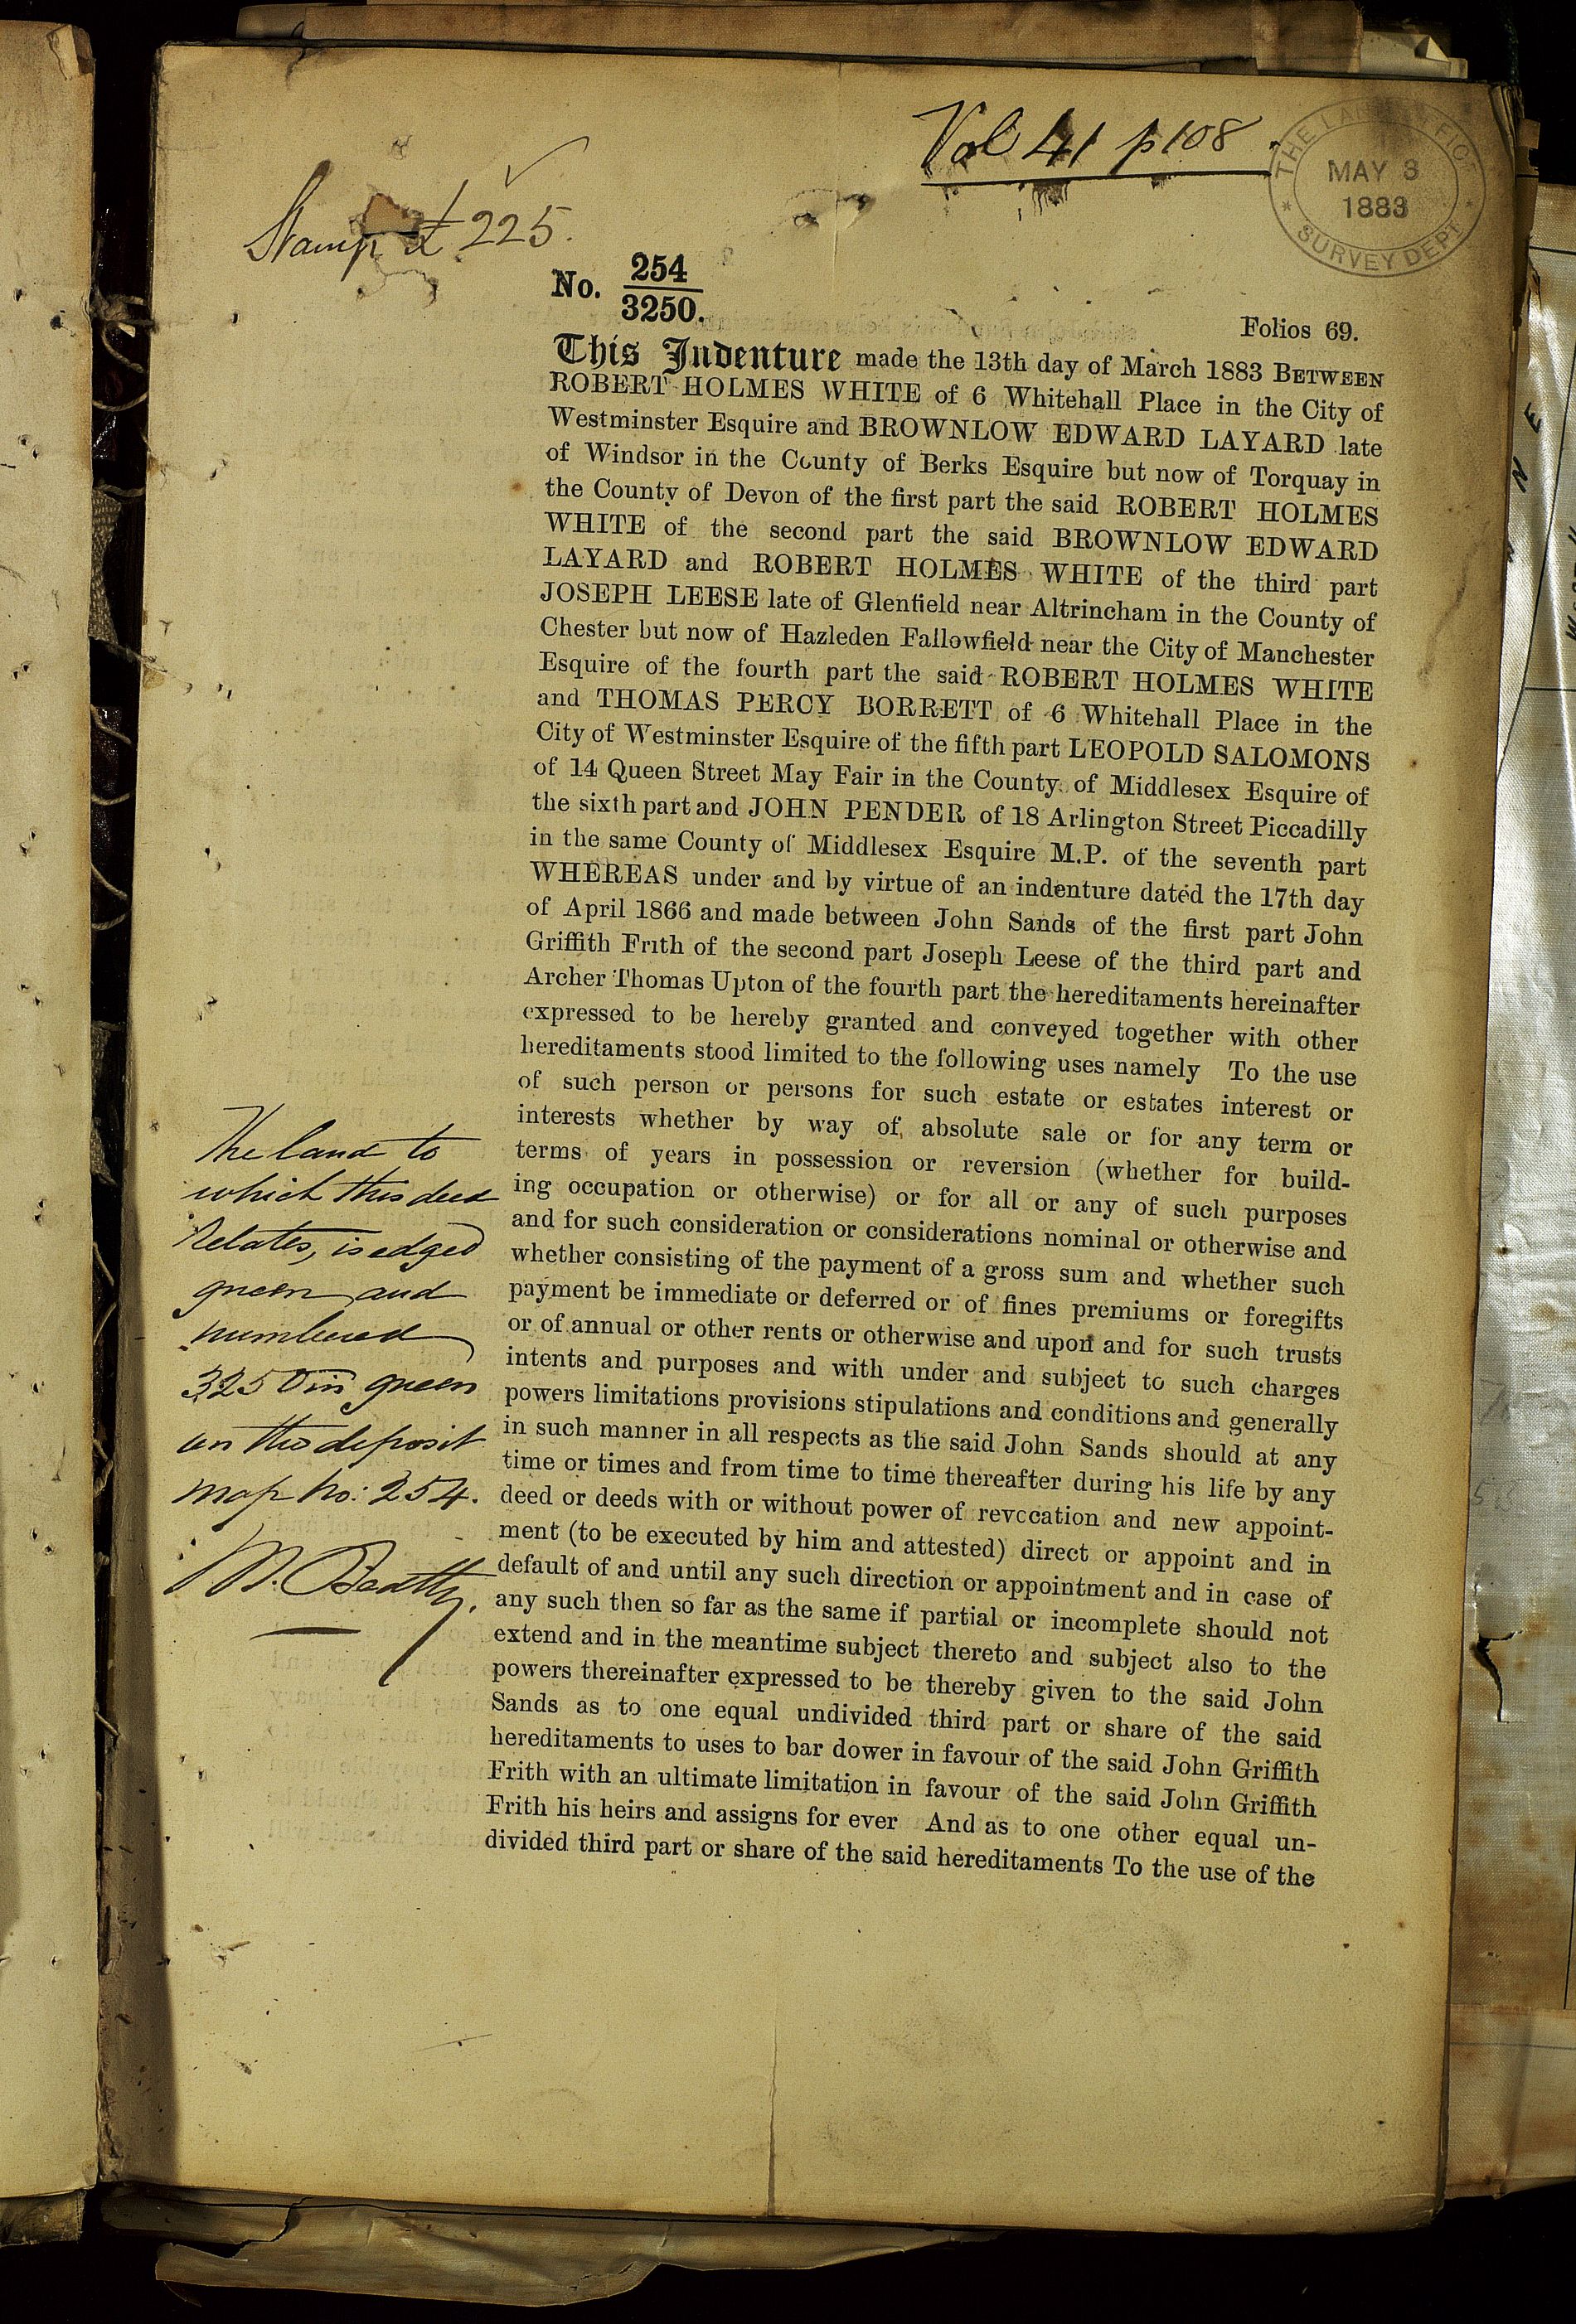 Vol 41 p 108
THE LAND OFFICE
MAY 3
1883
* SURVEY DEPT *
Stamp £225.
No. 254
3250.
Folios 69.
This Indenture made the 13th day of March 1883 BETWEEN
ROBERT HOLMES WHITE of 6 Whitehall Place in the City of
Westminster Esquire and BROWNLOW EDWARD LAYARD late
of Windsor in the County of Berks Esquire but now of Torquay in
the County of Devon of the first part the said ROBERT HOLMES
WHITE of the second part the said BROWNLOW EDWARD
LAYARD and ROBERT HOLMES WHITE of the third part
JOSEPH LEESE late of Glenfield near Altrincham in the County of
Chester but now of Hazleden Fallowfield near the City of Manchester
Esquire of the fourth part the said ROBERT HOLMES WHITE
and THOMAS PERCY BORRETT of 6 Whitehall Place in the
City of Westminster Esquire of the fifth part LEOPOLD SALOMONS
of 14 Queen Street May Fair in the County of Middlesex Esquire of
the sixth part and JOHN PENDER of 18 Arlington Street Piccadilly
in the same County of Middlesex Esquire M.P. of the seventh part
WHEREAS under and by virtue of an indenture dated the 17th day
of April 1866 and made between John Sands of the first part John
Griffith Frith of the second part Joseph Leese of the third part and
Archer Thomas Upton of the fourth part the hereditaments hereinafter
expressed to be hereby granted and conveyed together with other
hereditaments stood limited to the following uses namely To the use
of such person or persons for such estate or estates interest or
interests whether by way of absolute sale or for any term or
terms of years in possession or reversion (whether for build-
ing occupation or otherwise) or for all or any of such purposes
and for such consideration or considerations nominal or otherwise and
whether consisting of the payment of a gross sum and whether such
payment be immediate or deferred or of fines premiums or foregifts
or of annual or other rents or otherwise and upon and for such trusts
intents and purposes and with under and subject to such charges
powers limitations provisions stipulations and conditions and generally
in such manner in all respects as the said John Sands should at any
time or times and from time to time thereafter during his life by any
deed or deeds with or without power of revocation and new appoint-
ment (to be executed by him and attested) direct or appoint and in
default of and until any such direction or appointment and in case of
any such then so far as the same if partial or incomplete should not
extend and in the meantime subject thereto and subject also to the
powers thereinafter expressed to be thereby given to the said John
Sands as to one equal undivided third part or share of the said
hereditaments to uses to bar dower in favour of the said John Griffith
Frith with an ultimate limitation in favour of the said John Griffith
Frith his heirs and assigns for ever And as to one other equal un-
divided third part or share of the said hereditaments To the use of the
The land to
which this deed
relates, is edged
green and
numbered
3250 in green
on the deposit
map No: 254.
W. Beatty.